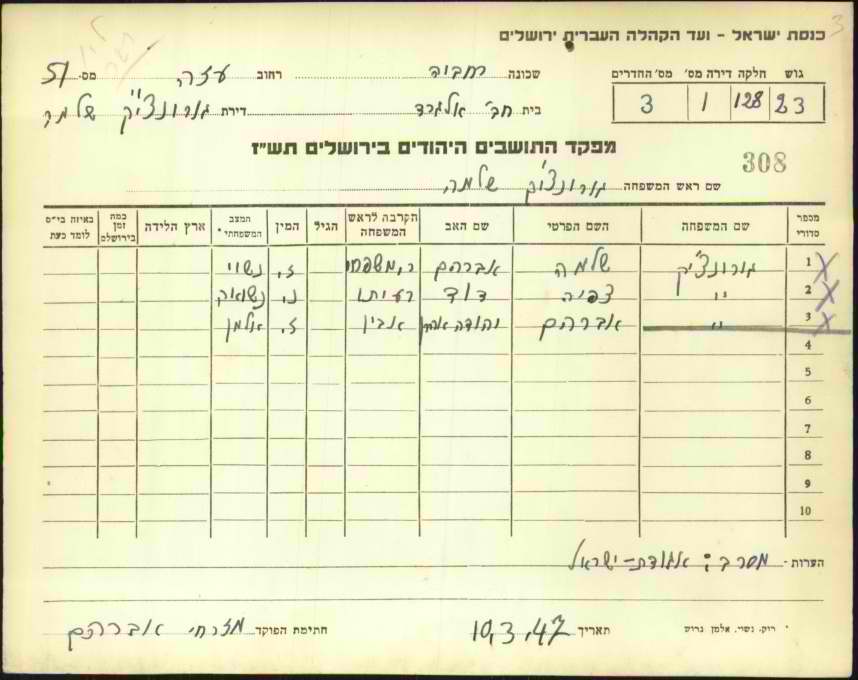 כנסת ישראל - ועד הקהלה העברית ירושלים
גוש חלקה דירה מס' מס' החדרים
23 128 1 3
שכונה רחביה רחוב עזה מס- 51
בית חב' דירת גורונצ'יק שלמה
מפקד התושבים היהודים בירושלים תש"ז
308
שם ראש המשפחה גורונצ'יק שלמה
מספר סדורי שם המשפחה השם הפרטי שם האב הקרבה לראש המשפחה הגיל המין המצב המשפחתי* ארץ הלידה כמה זמן בירושלים באיזה בי"ס לומד כעת
1 גורונצ'יק שלמה אברהם ר. משפחה ז. נשוי
2 " צפיה דוד רעיתו נ. נשואה
3 " אברהם יהודה אהרן אביו ז. אלמן
4
5
6
7
8
9
10
הערות - מסרב: אגודת-ישראל
* רוק, נשוי, אלמן גרוש תאריך 10.3.47 חתימת הפוקד מזרחי אברהם